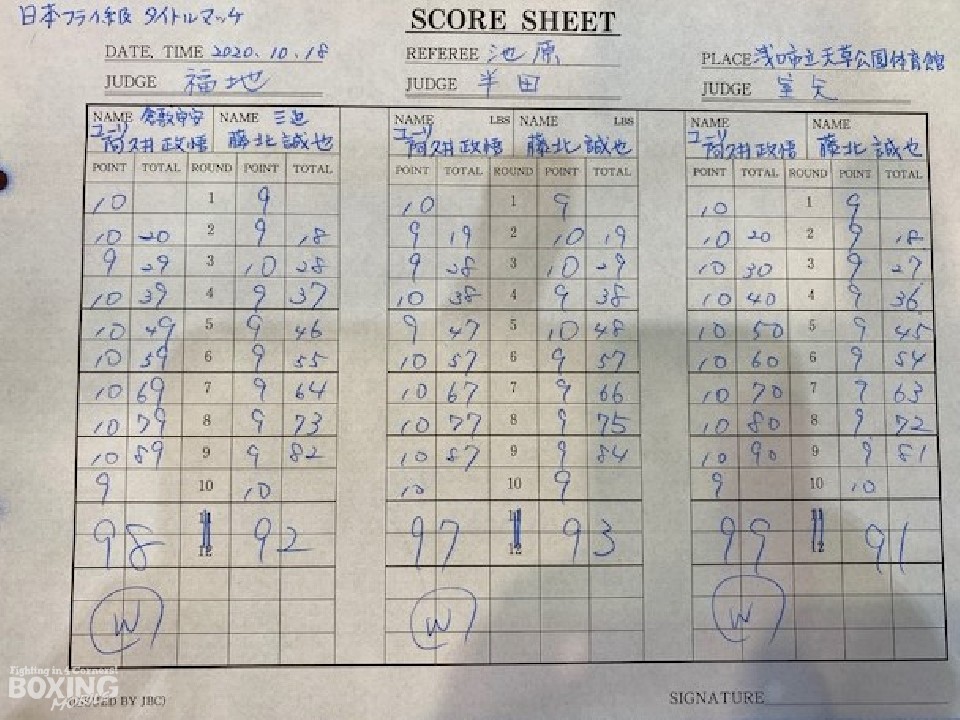 日本フライ級 タイトルマッチ
SCORE SHEET
DATE. TIME 2020.10.18 REFEREE 池原 PLACE 浅口市立天草公園体育館
JUDGE 福地 JUDGE 半田 JUDGE
NAME 倉敷守安 NAME 三迫 NAME LBS NAME LBS NAME NAME
ユーリ阿久井政悟 藤北誠也 ユーリ阿久井政悟 藤北誠也 ユーリ阿久井政悟 藤北誠也
POINT TOTAL ROUND POINT TOTAL POINT TOTAL ROUND POINT TOTAL POINT TOTAL ROUND POINT TOTAL
10 1 9 10 1 9 10 1 9
10 20 2 9 18 9 19 2 10 19 10 20 2 9 18
9 29 3 10 28 9 28 3 10 29 10 30 3 9 27
10 39 4 9 37 10 38 4 9 38 10 40 4 9 36
10 49 5 9 46 9 47 5 10 48 10 50 5 9 45
10 59 6 9 55 10 57 6 9 57 10 60 6 9 54
10 69 7 9 64 10 67 7 9 66 10 70 7 9 63
10 79 8 9 73 10 77 8 9 75 10 80 8 9 72
10 89 9 9 82 10 87 9 9 84 10 90 9 9 81
9 10 10 10 10 9 9 10 10
11 11 11
98 92 97 93 99 91
12 12 12
W W W
Fighting in 4 Corners!
BOXING
BY JBC) SIGNATURE